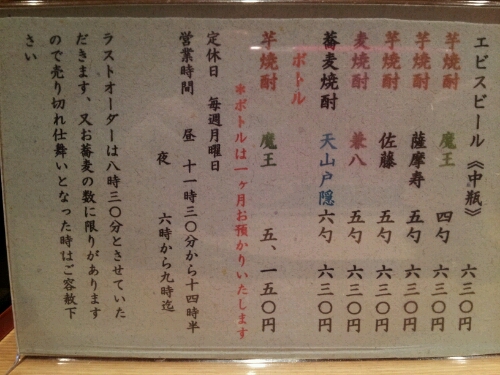 エビスビール《中瓶》 六三〇円
芋焼酎 魔王 四勺 六三〇円
芋焼酎 薩摩寿 五勺 六三〇円
芋焼酎 佐藤 五勺 六三〇円
麦焼酎 兼八 五勺 六三〇円
蕎麦焼酎 天山戸隠 六勺 六三〇円
ボトル
芋焼酎 魔王 五、一五〇円
*ボトルは一ヶ月お預かりいたします
定休日 毎週月曜日
営業時間 昼 十一時三〇分から十四時半
夜 六時から九時迄
ラストオーダーは八時三〇分とさせていた
だきます、又お蕎麦の数に限りがあります
ので売り切れ仕舞いとなった時はご容赦下
さい